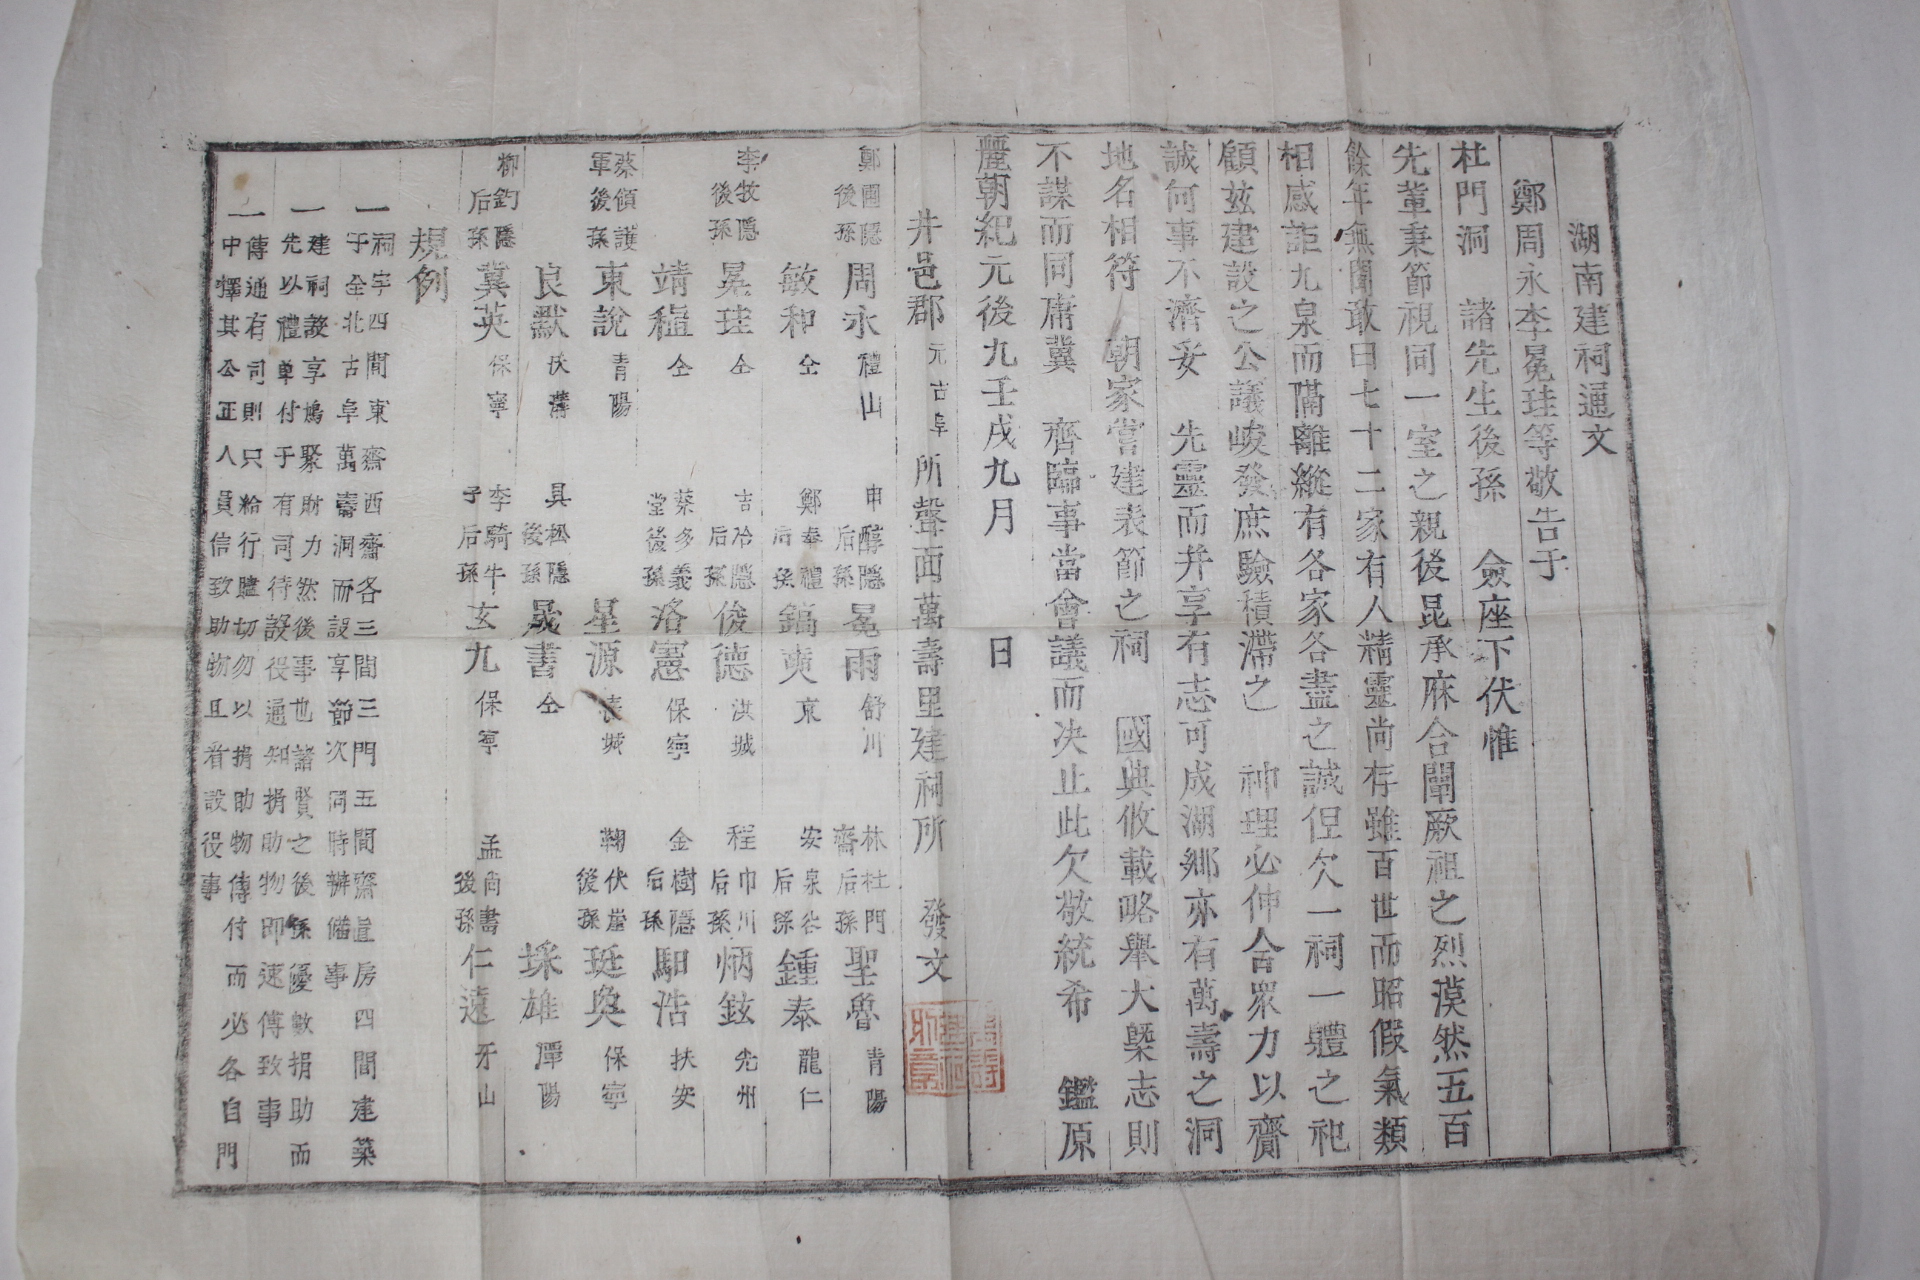 湖南建祠通文
鄭周永李冕珪等敬告于
杜門洞 諸先生後孫 僉座下伏惟
先輩秉節視同一室之親後昆承庥合闡厥祖之烈漠然五百
餘年無聞敢曰七十二家有人精靈尚存雖百世而昭假氣類
相感詎九泉而隔離縱有各家各盡之誠但欠一祠一軆之祀
顧玆建設之公議峻發庶驗積滯之 神理必伸合眾力以齎
誠何事不濟妥 先靈而幷享有志可成湖鄉亦有萬壽之洞
地名相符 朝家嘗建表節之祠 國典攸載略舉大槩志則
不謀而同庸冀 齊臨事當會議而决止此欠敬統希 鑑原
麗朝紀元後九壬戌九月 日
井邑郡 元古阜 所聲面萬壽里建祠所 發文
鄭圃隱後孫 周永 禮山 申醇隱后孫 冕雨 舒川 林杜門齋后孫 聖魯 青陽
敏和 仝 鄭奉禮后孫 鎬奭 京 安泉谷后孫 鍾泰 龍仁
李牧隱後孫 冕珪 仝 吉冶隱后孫 俊德 洪城 程巾川后孫 炳鉉 光州
靖稙 仝 蔡多義堂後孫 洛憲 保寧 金樹隱后孫 馹浩 扶安
蔡領護軍後孫 東說 青陽 星源 長城 鞠伏崖後孫 珽奐 保寧
良默 伏溝 具松隱後孫 晟書 仝 埰雄 潭陽
柳釣隱后孫 冀英 保寧 李騎牛子后孫 玄九 保寧 孟尚書後孫 仁遠 牙山
規例
一祠宇四間東齋西齋各三間三門五間齋直房四間建築
于全北古阜萬壽洞而設享節次同時辦備事
一建祠設享鳩聚財力然後事也諸賢之後孫優數捐助而
先以禮單付于有司待設役通知捐助物即速傳致事
一傳通有司則只給行贐切勿以捐助物傳付而必各自門
中擇其公正人員信致助物且看設役事